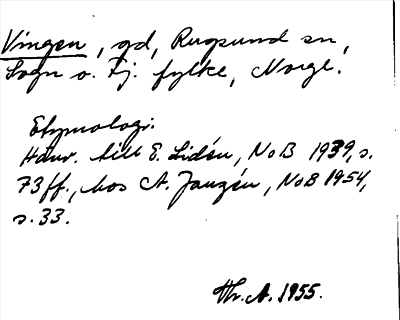 Vingen, gd, Rugsund sn,
Sogn o. Fj. fylke, Norge.
Etymologi:
Hänv. till E. Lidén, NoB 1939, s.
73ff., hos A. Janzén, NoB 1954,
s. 33.
Th. A. 1955.